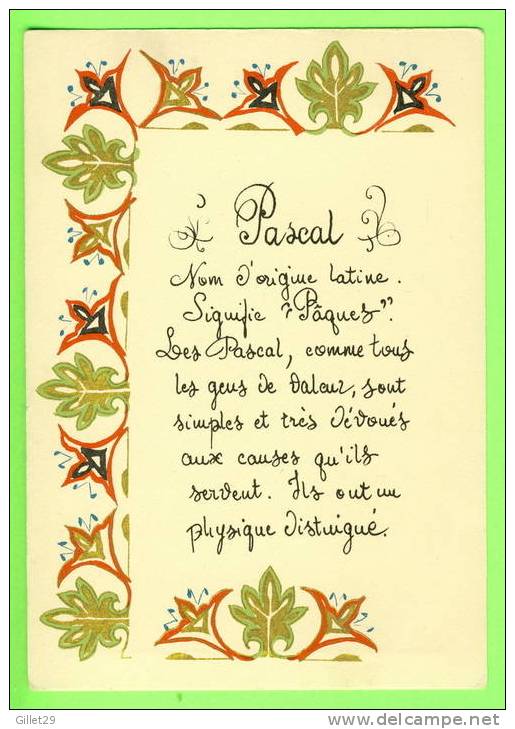 Pascal
Nom d'origine latine.
Signifie "Pâques".
Les Pascal, comme tous
les gens de valeur, sont
simples et très dévoués
aux causes qu'ils
servent. Ils ont un
physique distingué.
Gillet29
http://www.delcampe.net